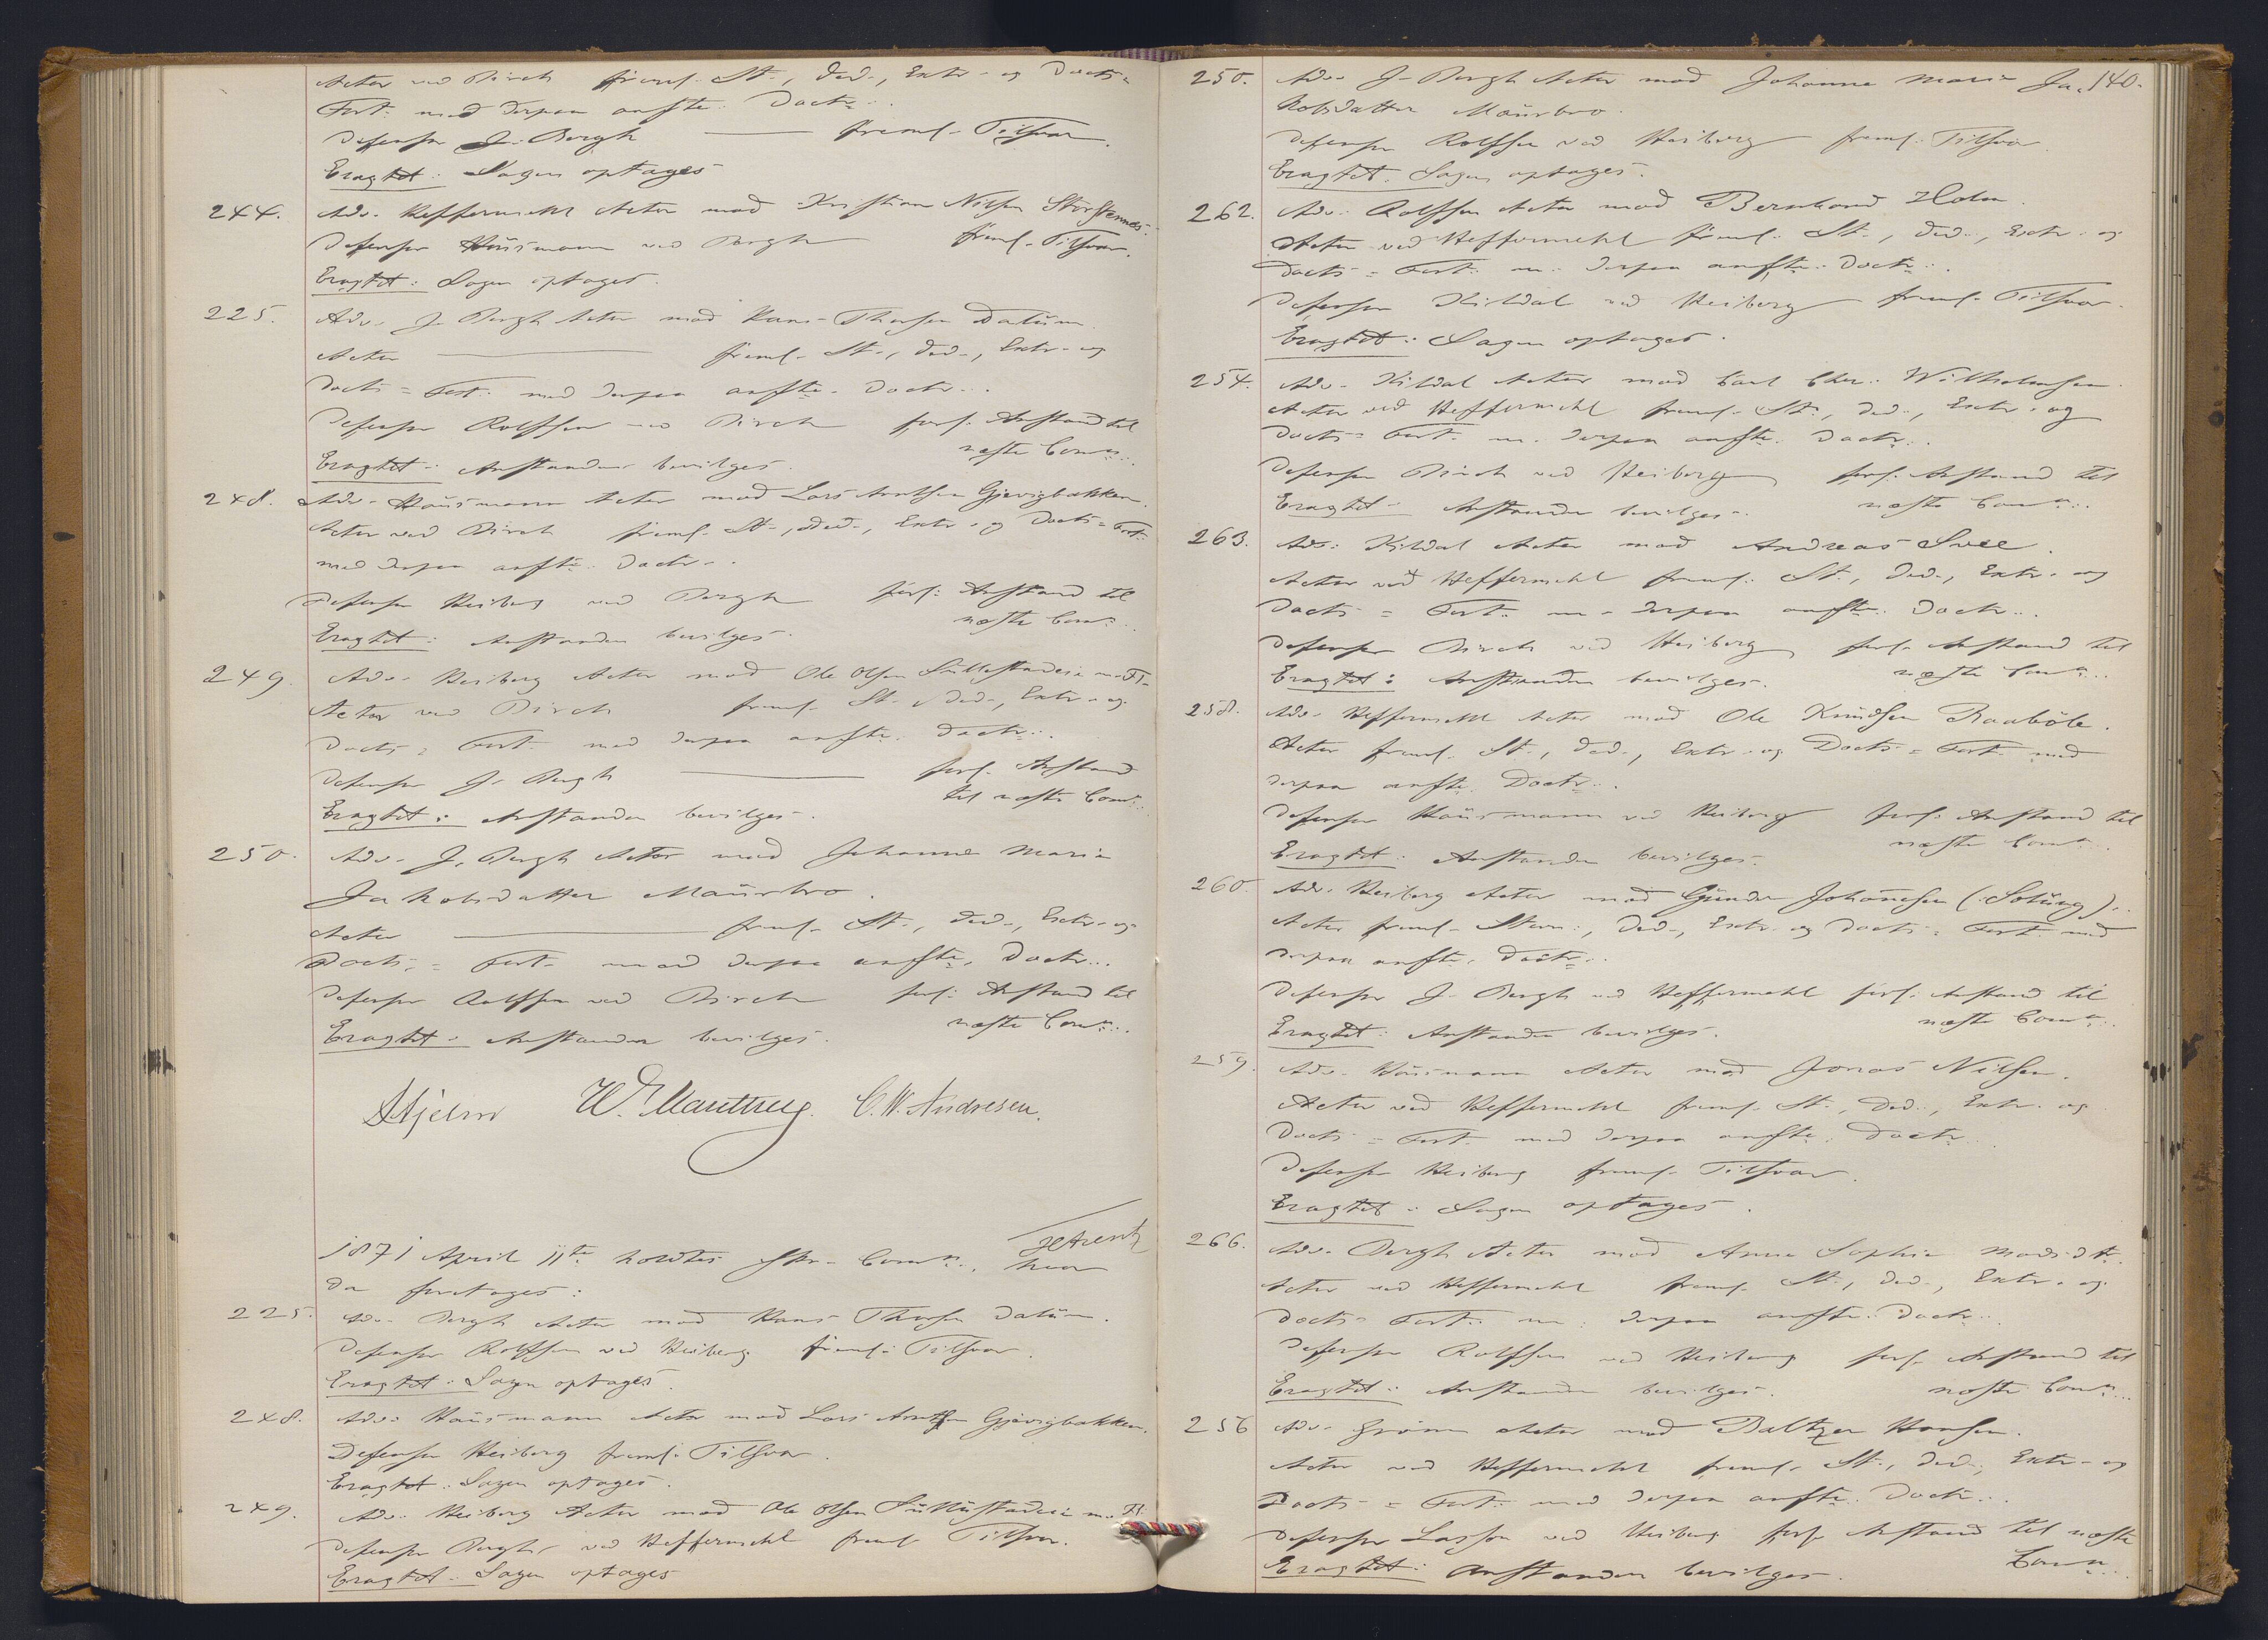 Actor ved Birch freml. St., Ded., Extr. og Docts=
Fort. med derpaa anførte Doctr.
Defensor J. Bergh freml. Tilsvar.
Eragtet: Sagen optages
244. Adv. Heffermehl Actor mod Kristian Nilsen Storstennes.
Defensor Hausmann ved Bergh freml. Tilsvar.
Eragtet: Sagen optages.
225. Adv. J. Bergh Actor mod Hans Thorsen Datum.
Actor freml. St., Ded., Extr. og
Docts = Fort. med derpaa anførte Doctr.
Defensor Rolfsen ved Birch forl. Anstand til
næste Cons.
Eragtet: Anstanden bevilges.
248. Adv. Hausmann Actor mod Lars Arntsen Gjævigbakken.
Actor ved Birch freml. St., Ded., Extr. og Docts = Fort.
med derpaa anførte Doctr.
Defensor Heiberg ved Bergh forl. Anstand til
næste Cons.
Eragtet: Anstanden bevilges.
249. Adv. Heiberg Actor mod Ole Olsen m. Fl.
Actor ved Birch freml. St., Ded., Extr. og
Docts = Fort. med derpaa anførte Doctr.
Defensor J. Bergh forl. Anstand
til næste Cons.
Eragtet: Anstanden bevilges.
250. Adv. J. Bergh Actor mod Johanne Marie
Jakobsdatter Maursbro.
Actor freml. St., Ded., Extr. og
Docts. = Fort. med derpaa anførte Doctr.
Defensor Rolfsen ved Birch forl. Anstand til
næste Cons.
Eragtet: Anstanden bevilges.
Hjelm C. W. Andresen.
1871 April 11te holdtes Cons., hvor
da foretages:
225. Adv. Bergh Actor mod Hans Thorsen Datum.
Defensor Rolfsen ved Heiberg freml. Tilsvar.
Eragtet: Sagen optages.
248. Adv. Hausmann Actor mod Lars Arntsen Gjævigbakken.
Defensor Heiberg freml. Tilsvar.
Eragtet: Sagen optages.
249. Adv. Heiberg Actor mod Ole Olsen m. Fl.
Defensor Bergh ved Heffermehl freml. Tilsvar.
Eragtet: Sagen optages
140.
250. Adv. J. Bergh Actor mod Johanne Marie Ja-
kobsdatter Maursbro.
Defensor Rolfsen ved Heiberg freml. Tilsvar.
Eragtet: Sagen optages.
262. Adv. Rolfsen Actor mod Bernhard Holm.
Actor ved Heffermehl freml. St., Ded., Extr. og
Docts = Fort. m. derpaa anførte Doctr.
Defensor Kildal ved Heiberg freml. Tilsvar.
Eragtet: Sagen optages.
254. Adv. Kildal Actor mod Carl Chr. Wilhelmsen.
Actor ved Heffermehl freml. St., Ded., Extr. og
Docts = Fort. m. derpaa anførte Doctr.
Defensor Birch ved Heiberg forl. Anstand til
næste Cons.
Eragtet: Anstanden bevilges.
263. Adv. Kildal Actor mod Andreas Svee.
Actor ved Heffermehl freml. St., Ded., Extr. og
Docts = Fort. m. derpaa anførte Doctr.
Defensor Birch ved Heiberg forl. Anstand til
næste Cons.
Eragtet: Anstanden bevilges.
258. Adv. Heffermehl Actor mod Ole Knudsen Raaböle.
Actor freml. St., Ded., Extr. og Docts = Fort. med
derpaa anførte Doctr.
Defensor Hausmann ved Heiberg forl. Anstand til
næste Cons.
Eragtet: Anstanden bevilges.
260. Adv. Heiberg Actor mod Gunder Johannesen (Solung).
Actor freml. Stevn., Ded., Extr. og Docts = Fort. med
derpaa anførte Doctr.
Defensor J. Bergh ved Heffermehl forl. Anstand til
næste Cons.
Eragtet: Anstanden bevilges.
259. Adv. Hausmann Actor mod Jonas Nilsen.
Actor ved Heffermehl freml. St., Ded., Extr. og
Docts = Fort. med derpaa anførte Doctr.
Defensor Heiberg freml. Tilsvar.
Eragtet: Sagen optages.
266. Adv. Bergh Actor mod Anne Sophie Madsdtr.
Actor ved Heffermehl freml. St., Ded., Extr. og
Docts = Fort. m. derpaa anførte Doctr.
Defensor Rolfsen ved Heiberg forl. Anstand til
næste Cons.
Eragtet: Anstanden bevilges.
256 Adv. Actor mod Baltzer Hansen.
Actor ved Heffermehl freml. St., Ded., Extr. og
Docts = Fort. med derpaa anførte Doctr.
Defensor Lasson ved Heiberg forl. Anstand til næste
Cons.
Eragtet: Anstanden bevilges.